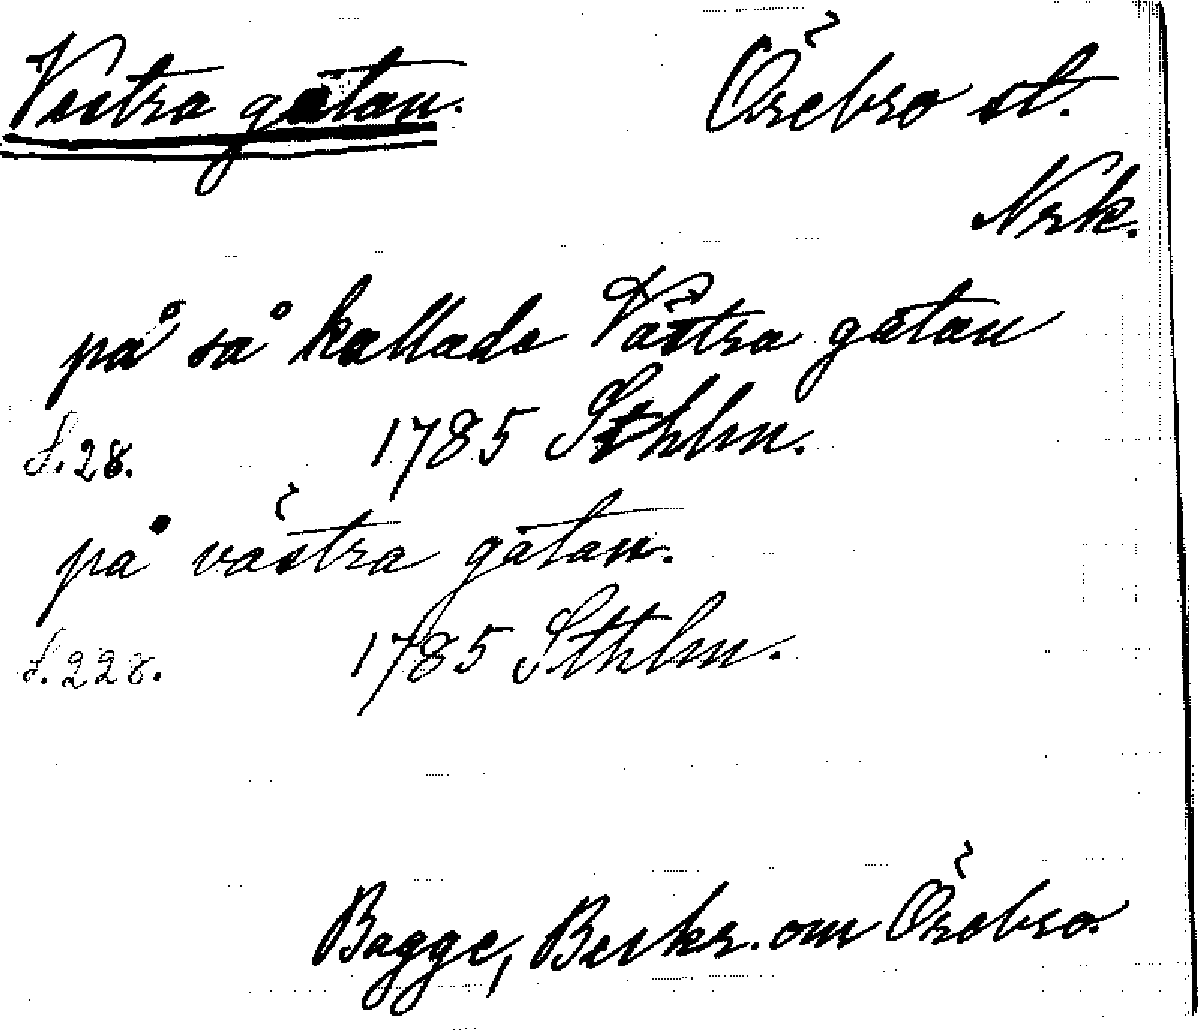 Vestra gatan. Örebro st.
Nrk.
på så kallade Västra gatan
S. 28. 1785 Sthlm.
på västra gatan.
S. 228. 1785 Sthlm.
Bagge, Beskr. om Örebro.